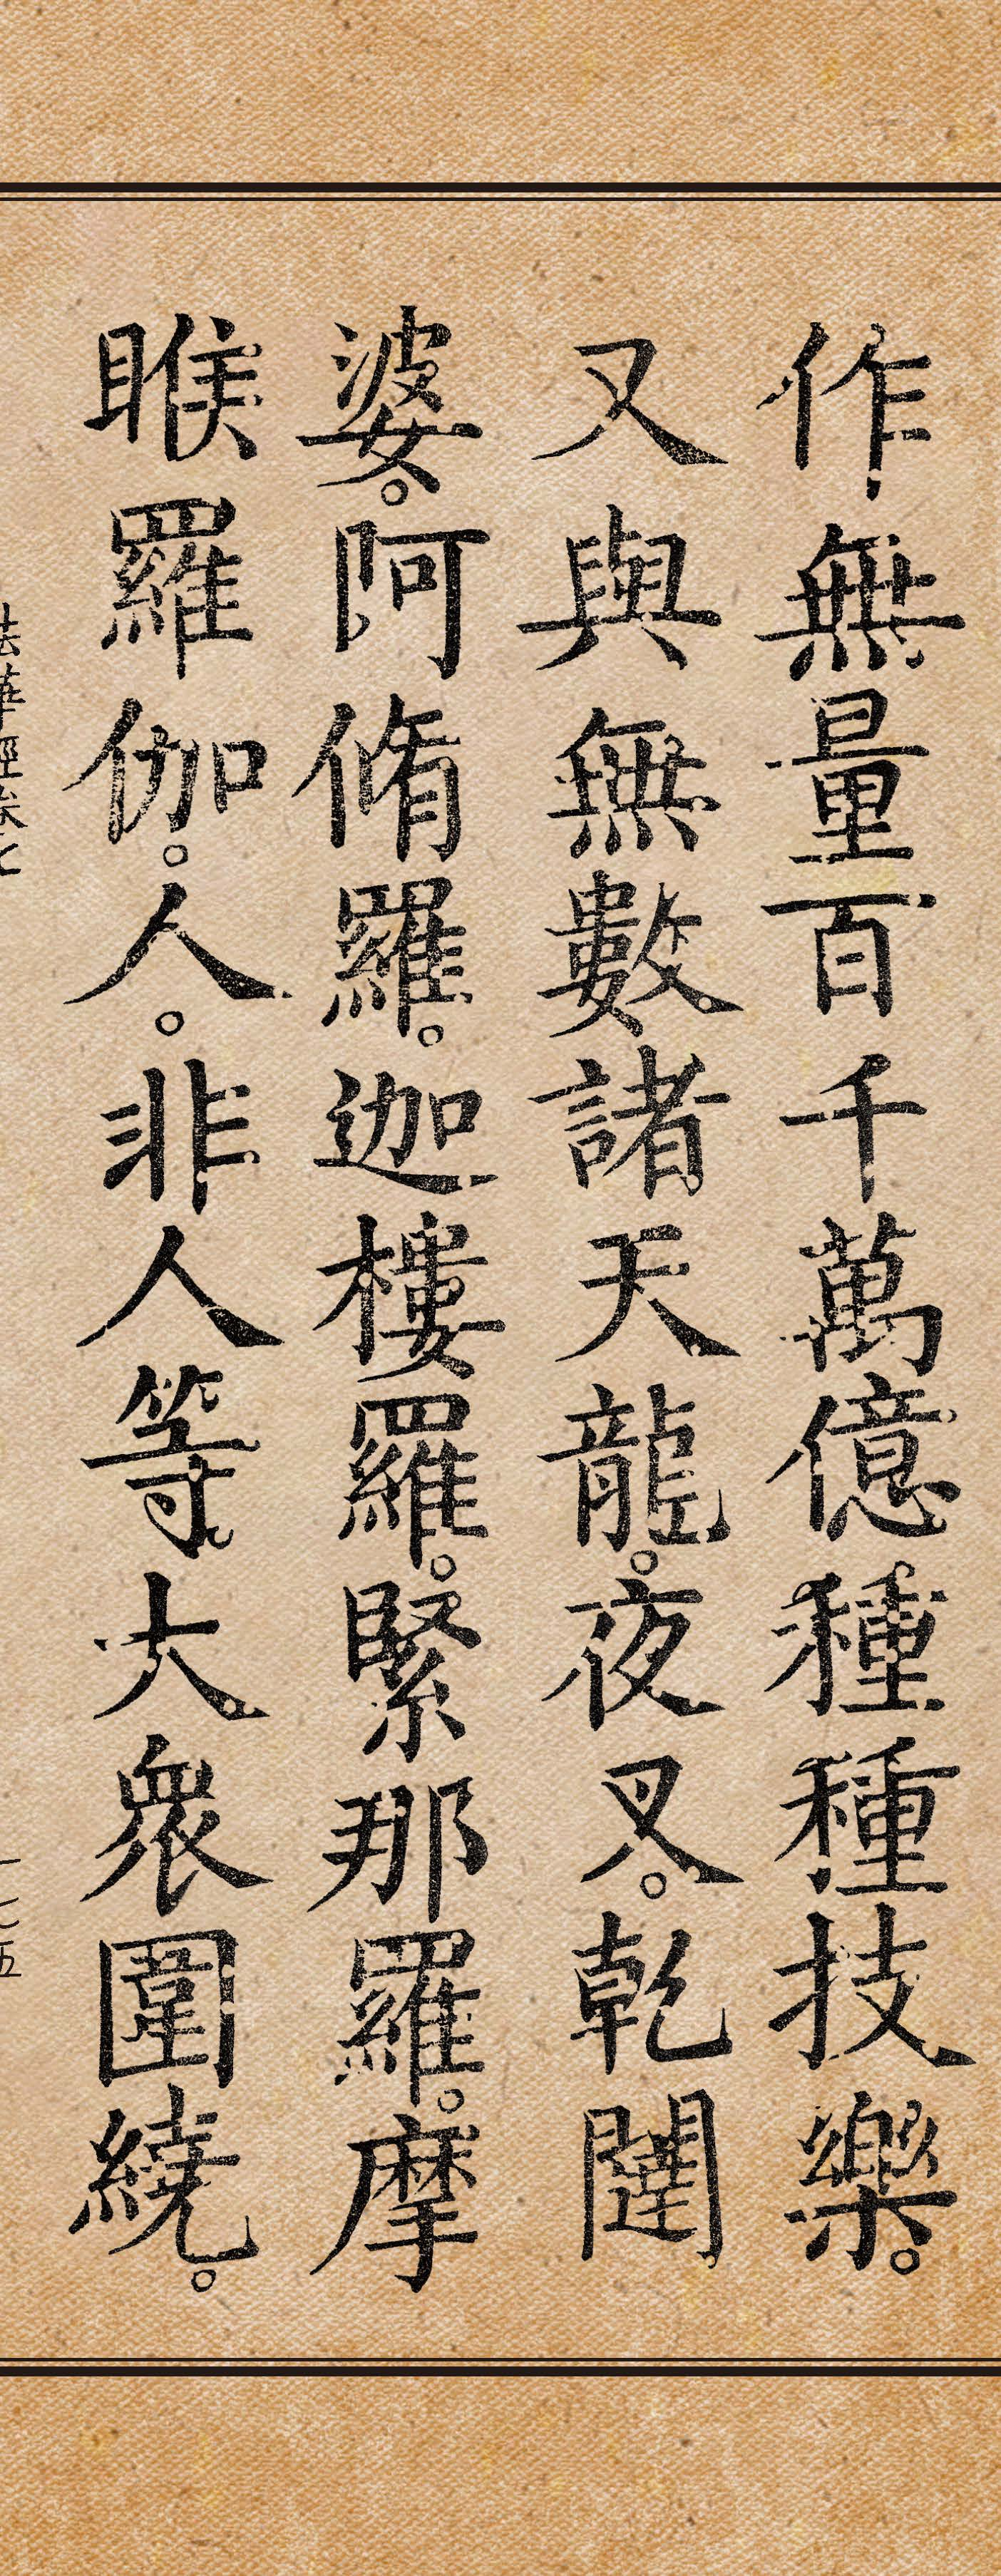 作無量百千萬億種種技樂。
又與無數諸天龍。夜叉。乾闥
婆。阿脩羅。迦樓羅。緊那羅。摩
睺羅伽。人。非人等大衆圍繞。
法華經卷七
一七五